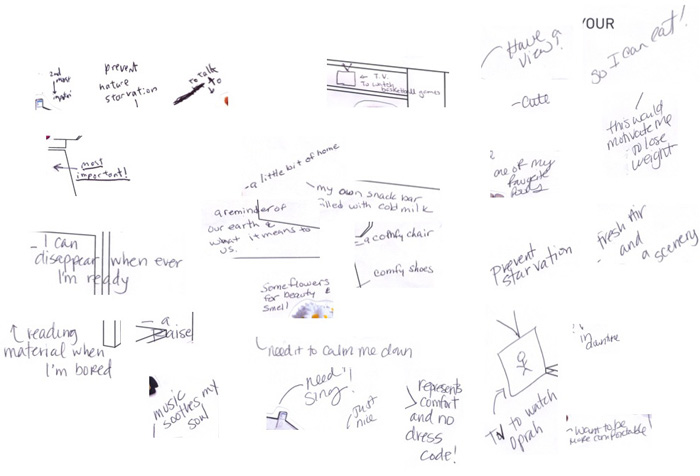 YOUR
Have a
view!
So I can eat!
2nd
most
prevent
nature
starvation
!
to talk
to
← T.V.
To watch
basketball games
-cute
this would
motivate me
to lose
weight
most
important!
-a little bit of home
my own snack bar
filled with cold milk
one of my
favorite
a reminder of
our earth &
what it means to
us.
-a comfy chair
comfy shoes
- I can
disappear when ever
I'm ready
Some flowers
for beauty &
smell
Prevent
starvation
fresh air
and
a scenery
reading
material when
I'm bored
- a
raise!
need it to calm me down
in
downtime
music
soothes my
soul
need!
Sing.
just
nice
represents
comfort
and no
dress
code!
TV to watch
Oprah
want to be
more comfortable!